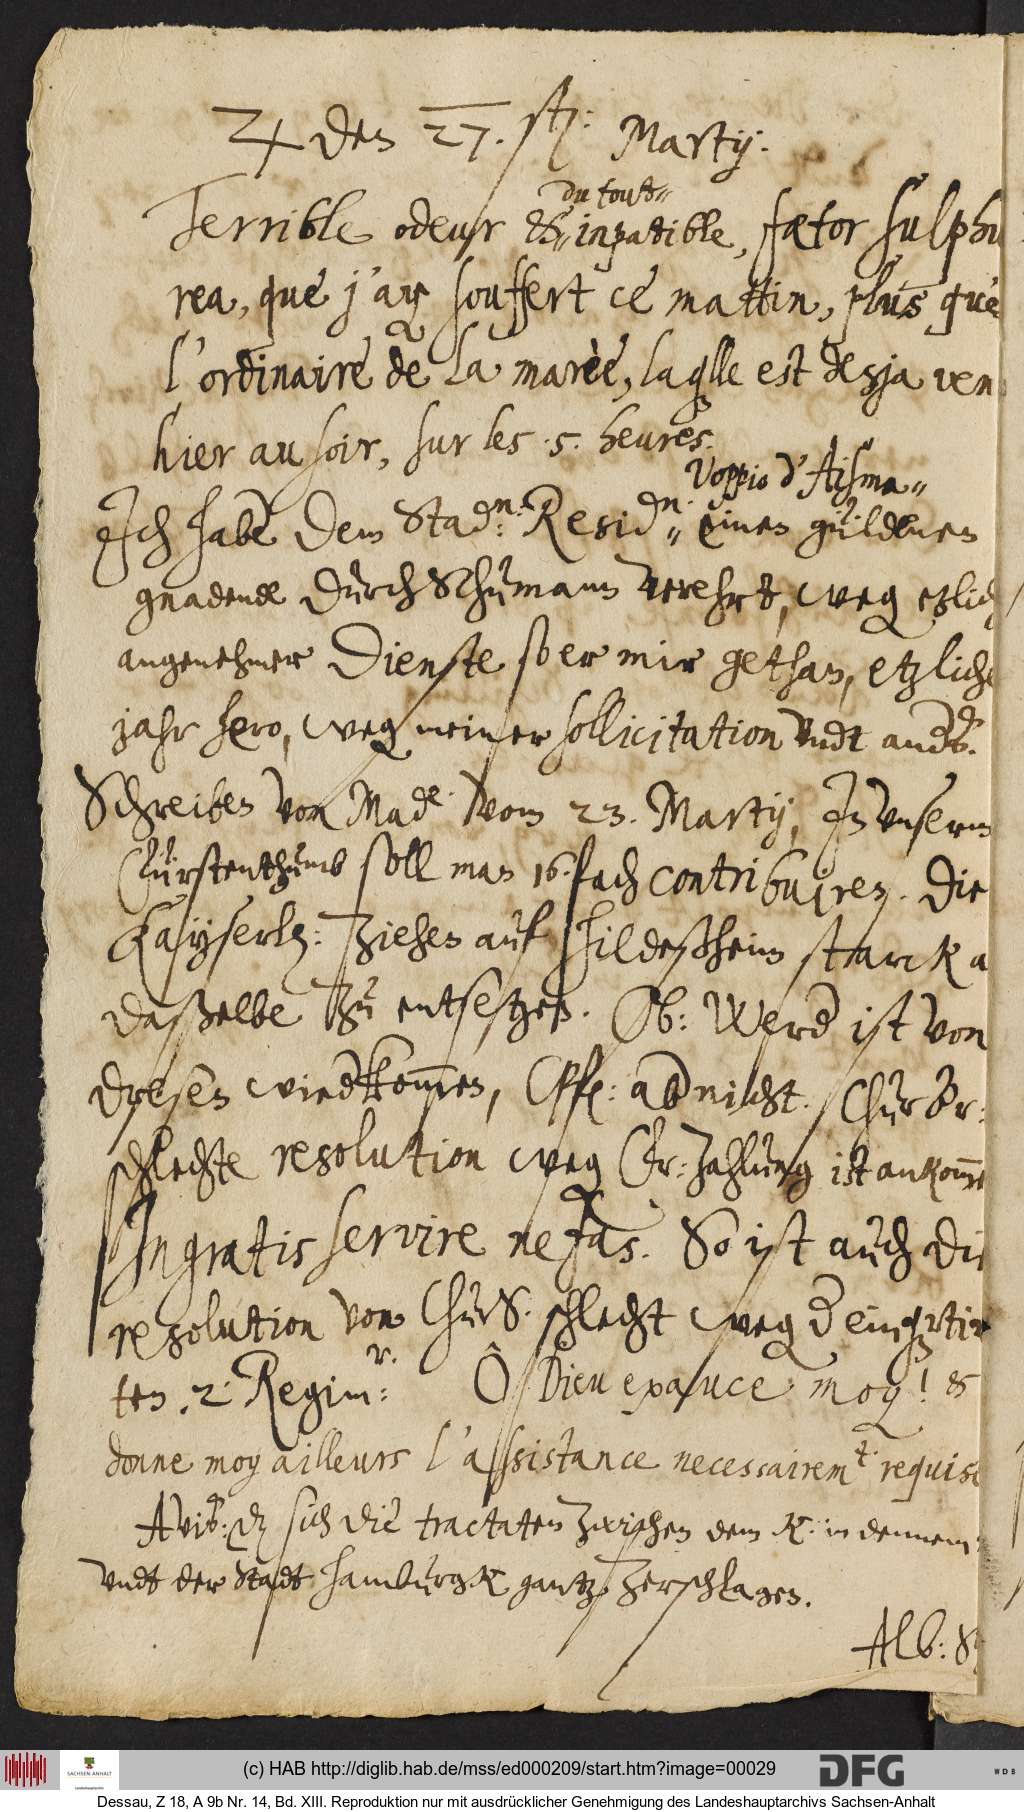 ♃ den 27. stz: Martij.
du tout
Terrible odeur & inpatible, fætor sulphu
rea, que j'ay souffert ce mattin, plus que
l'ordinaire de la marèe, laqlle est desja ven
hier au soir, sur les .5. heures.
Voppio d'Aisma
Ich habe dem Stadn: Residn. einen güldenen
gnadend durch Schumann verehrt, weg etzlich
angenehmer Dienste so er mir gethan, etzliche
jahr hero, weg meiner sollicitation vndt
Schreiben von Made. vom 23. Martij, In vnserm
Fürstenthumb soll man 16.fach contribuiren. Die
Kayserln: ziehen auf Hildesheim starck a
daßelbe zu entsetzen. Ob: Werd ist von
dresen wiedkommen, aber nicht. Chur Br:
schlechte resolution weg zahlung ist ankomme
Ingratis servire nefas. So ist auch die
resolution von ChurS. schlecht weg
ten .2. Regimr: Ô Dieu exauce moy! &
donne moy ailleurs l'assistance necessairemt. requise
Avis: dz sich die tractaten zwischen dem K. in dennem
vndt der Stadt Hamburgk gantz zerschlagen.
Alb:
(c) HAB http://diglib.hab.de/mss/ed000209/start.htm?image=00029
SACHSEN-ANHALT
DFG
WDB
Dessau, Z 18, A 9b Nr. 14, Bd. XIII. Reproduktion nur mit ausdrücklicher Genehmigung des Landeshauptarchivs Sachsen-Anhalt